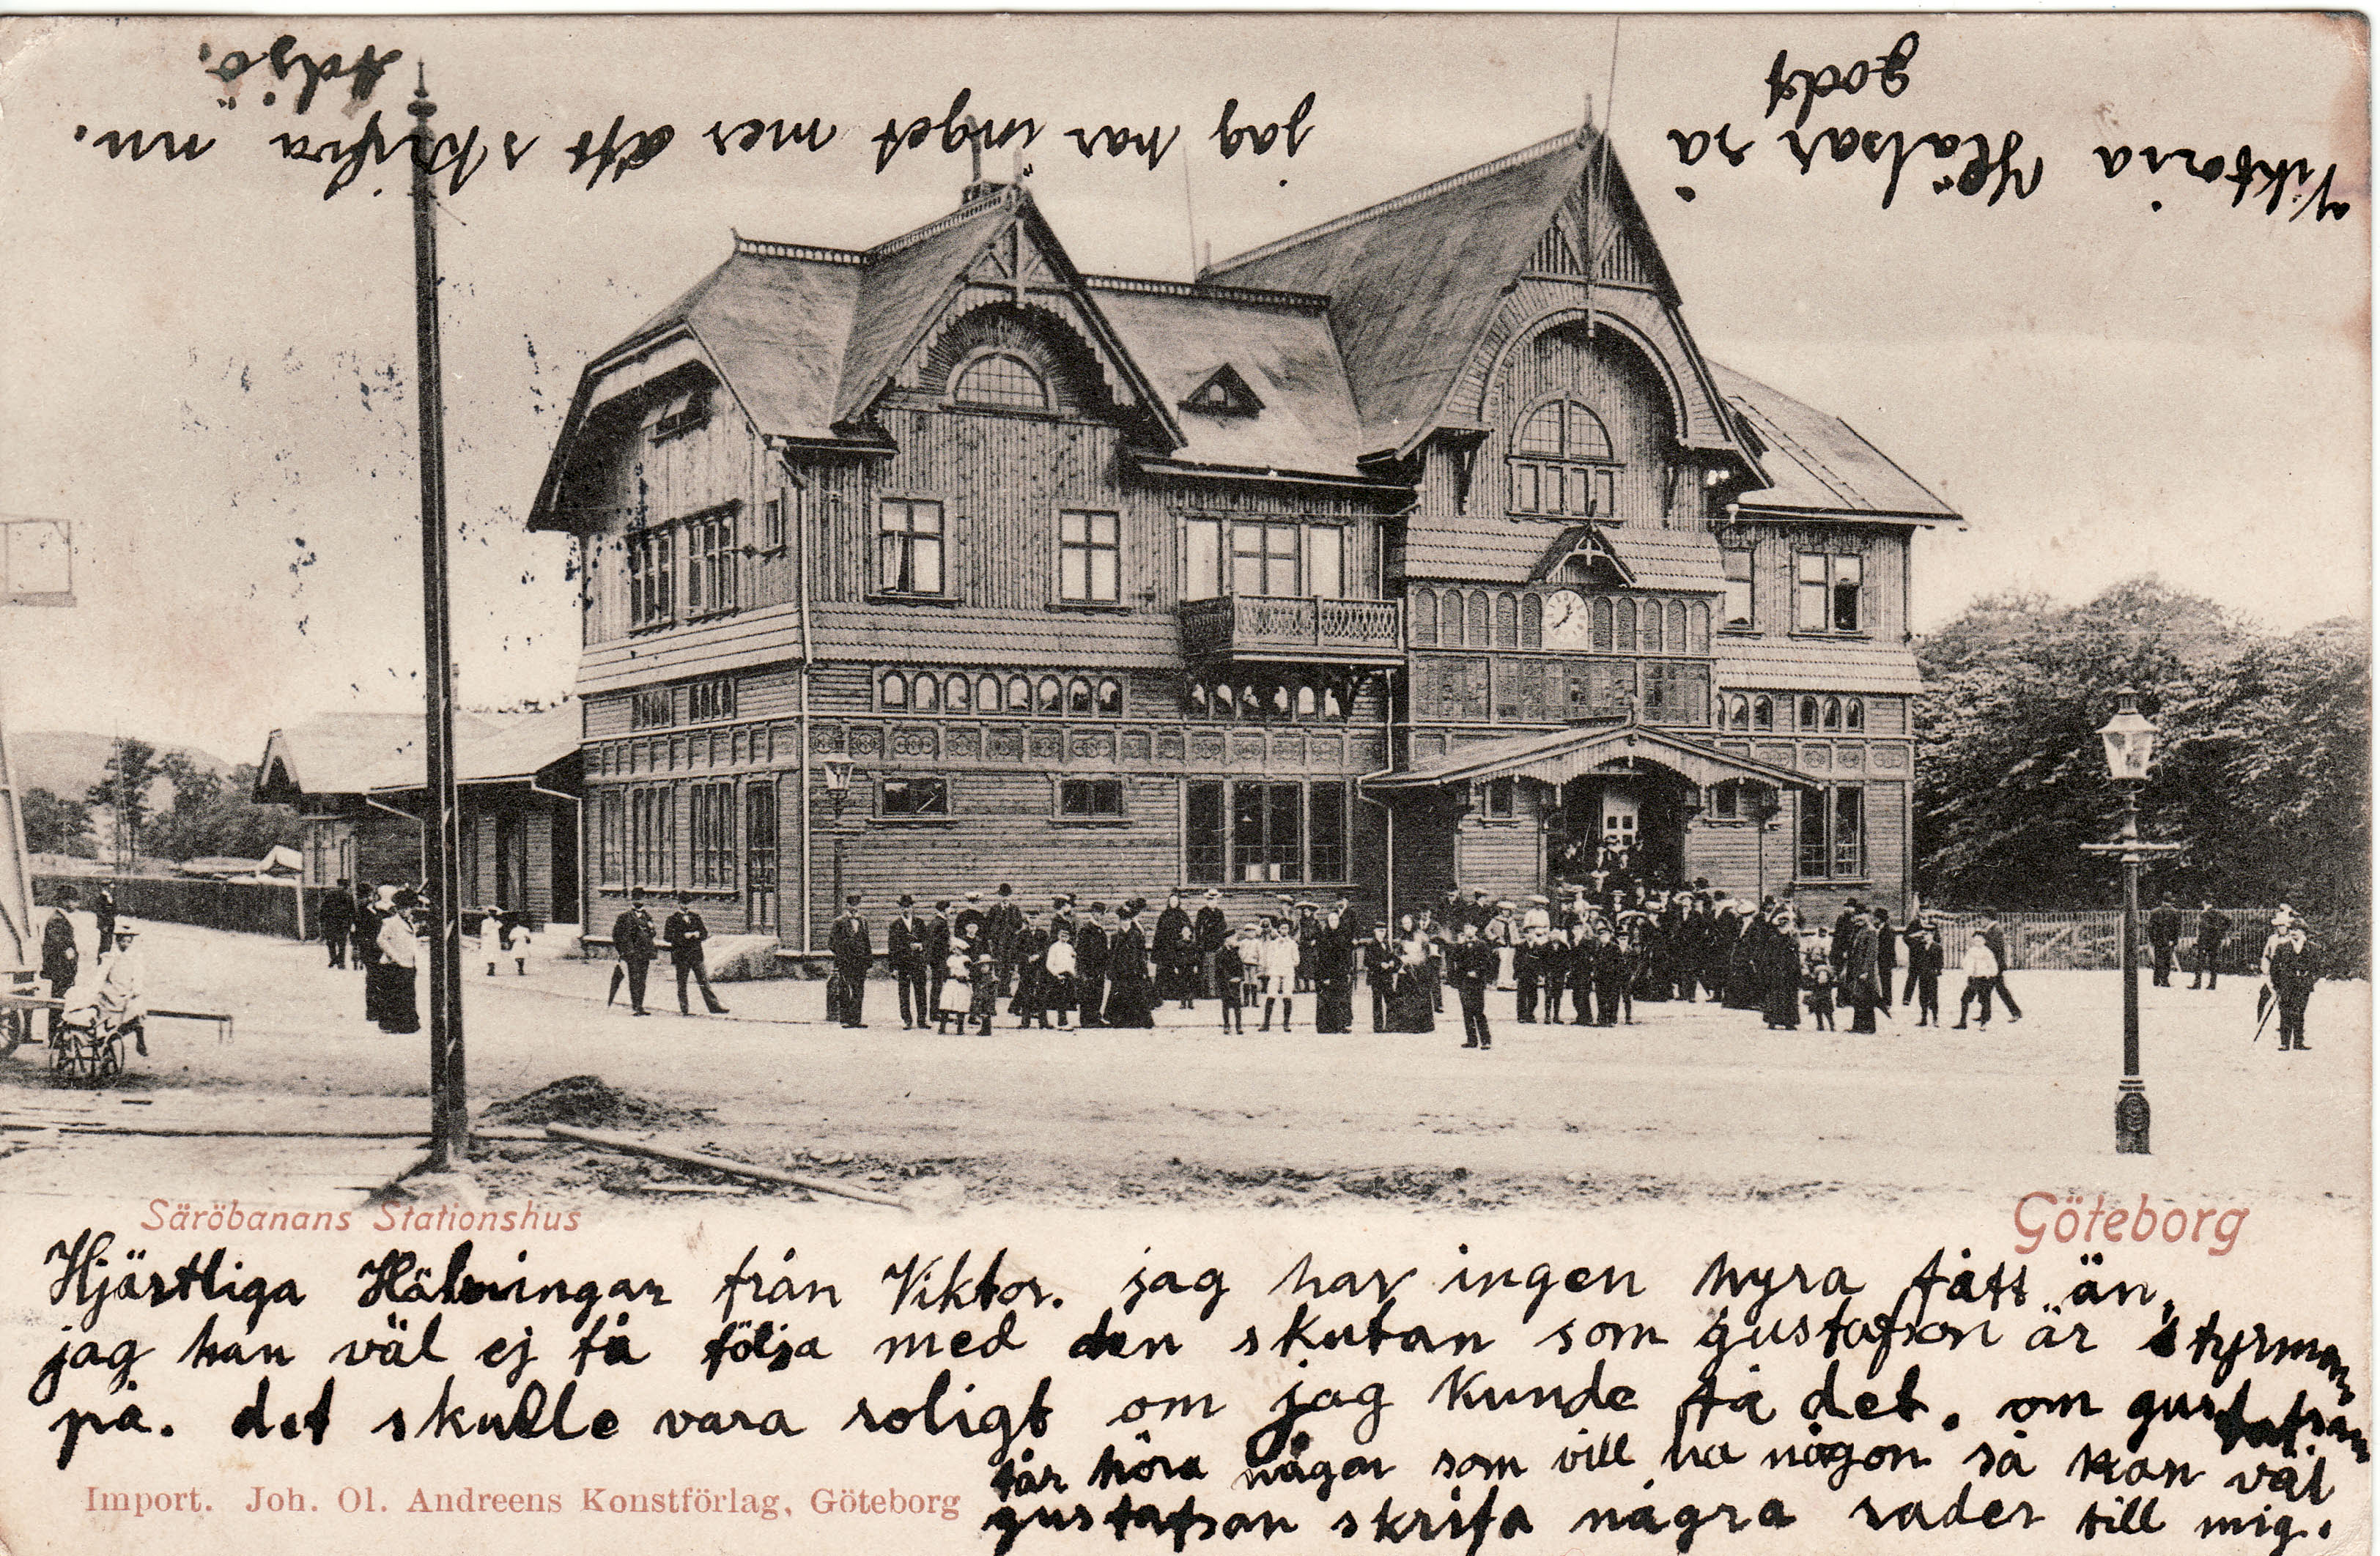 Säröbanans Stationshus
Göteborg
Hjärtliga Hälsningar från Viktor. jag har ingen hyra fått än,
jag kan väl ej få följa med den skutan som gustafson är styrman
på. det skulle vara roligt om jag kunde få det. om gustafson
får höra någon som vill ha någon så kan väl
gustafson skrifa några rader till mig.
Import. Joh. Ol. Andreens Konstförlag, Göteborg
Viktoria Hälsar så
godt
jag har inget mer att skrifva nu.
Adjö.